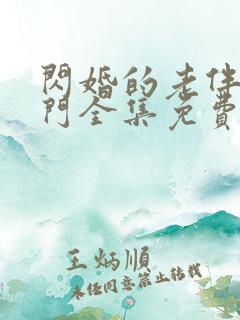 閃婚的老伴
門全集免費
王炳順
未经同意禁止转载